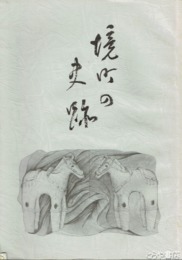 境町の
史跡